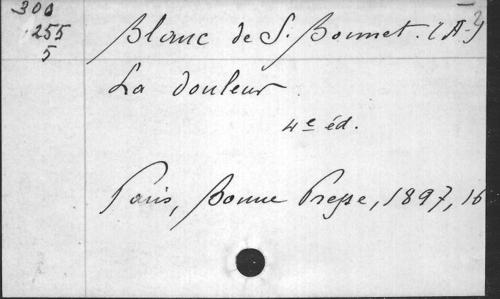 300
255
5
Blanc de S. Bonnet. (A-)
La douleur
4e éd.
Paris, Bonne Presse, 1897, 16